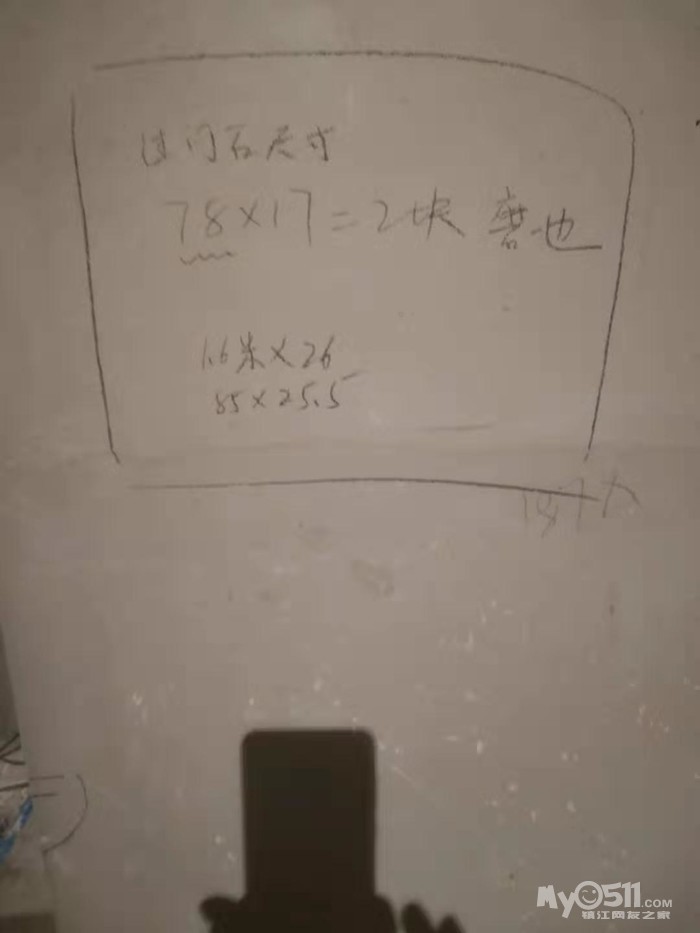 过门石尺寸
78×17=2块 磨也
1.6米×26
85×25.5
MY0511.COM
镇江网友之家